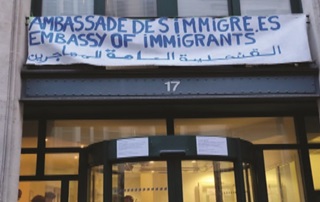 AMBASSADE DES IMMIGRÉ.ES
EMBASSY OF IMMIGRANTS
القنصلية العامة للمهاجرين
17